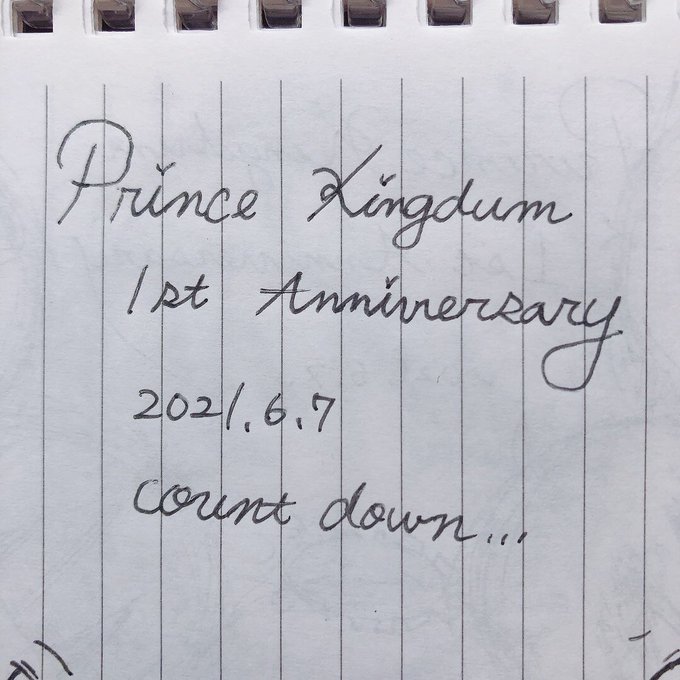 Prince Kingdum
1st Anniversary
2021.6.7
count down...